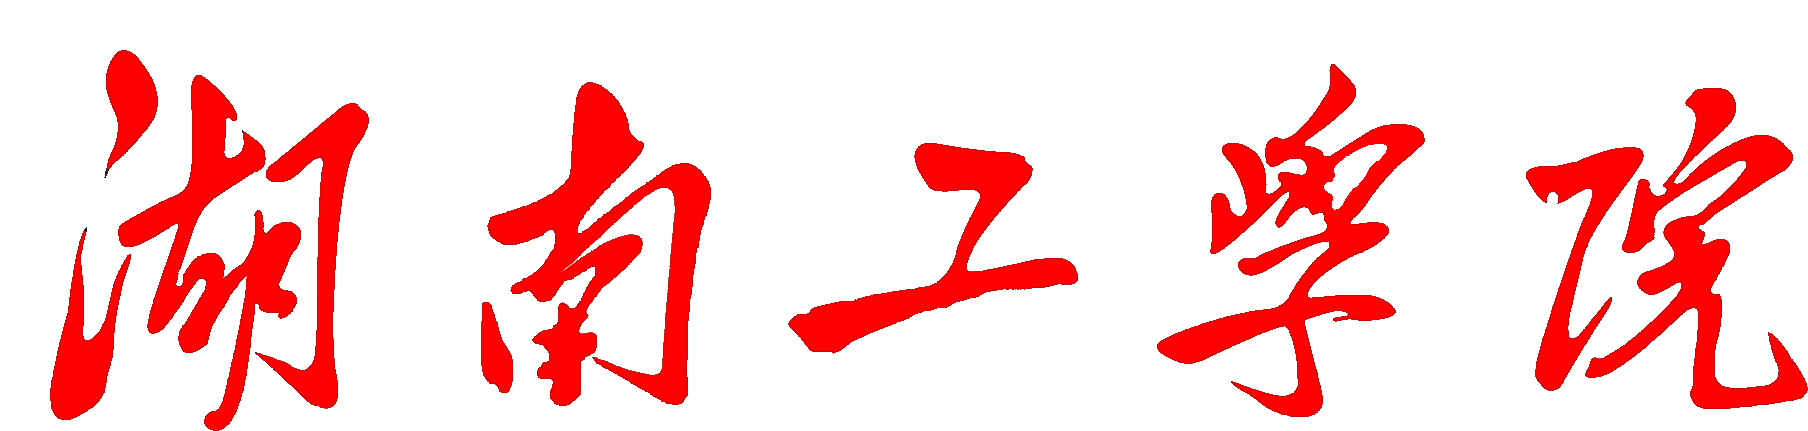 湖南工學院